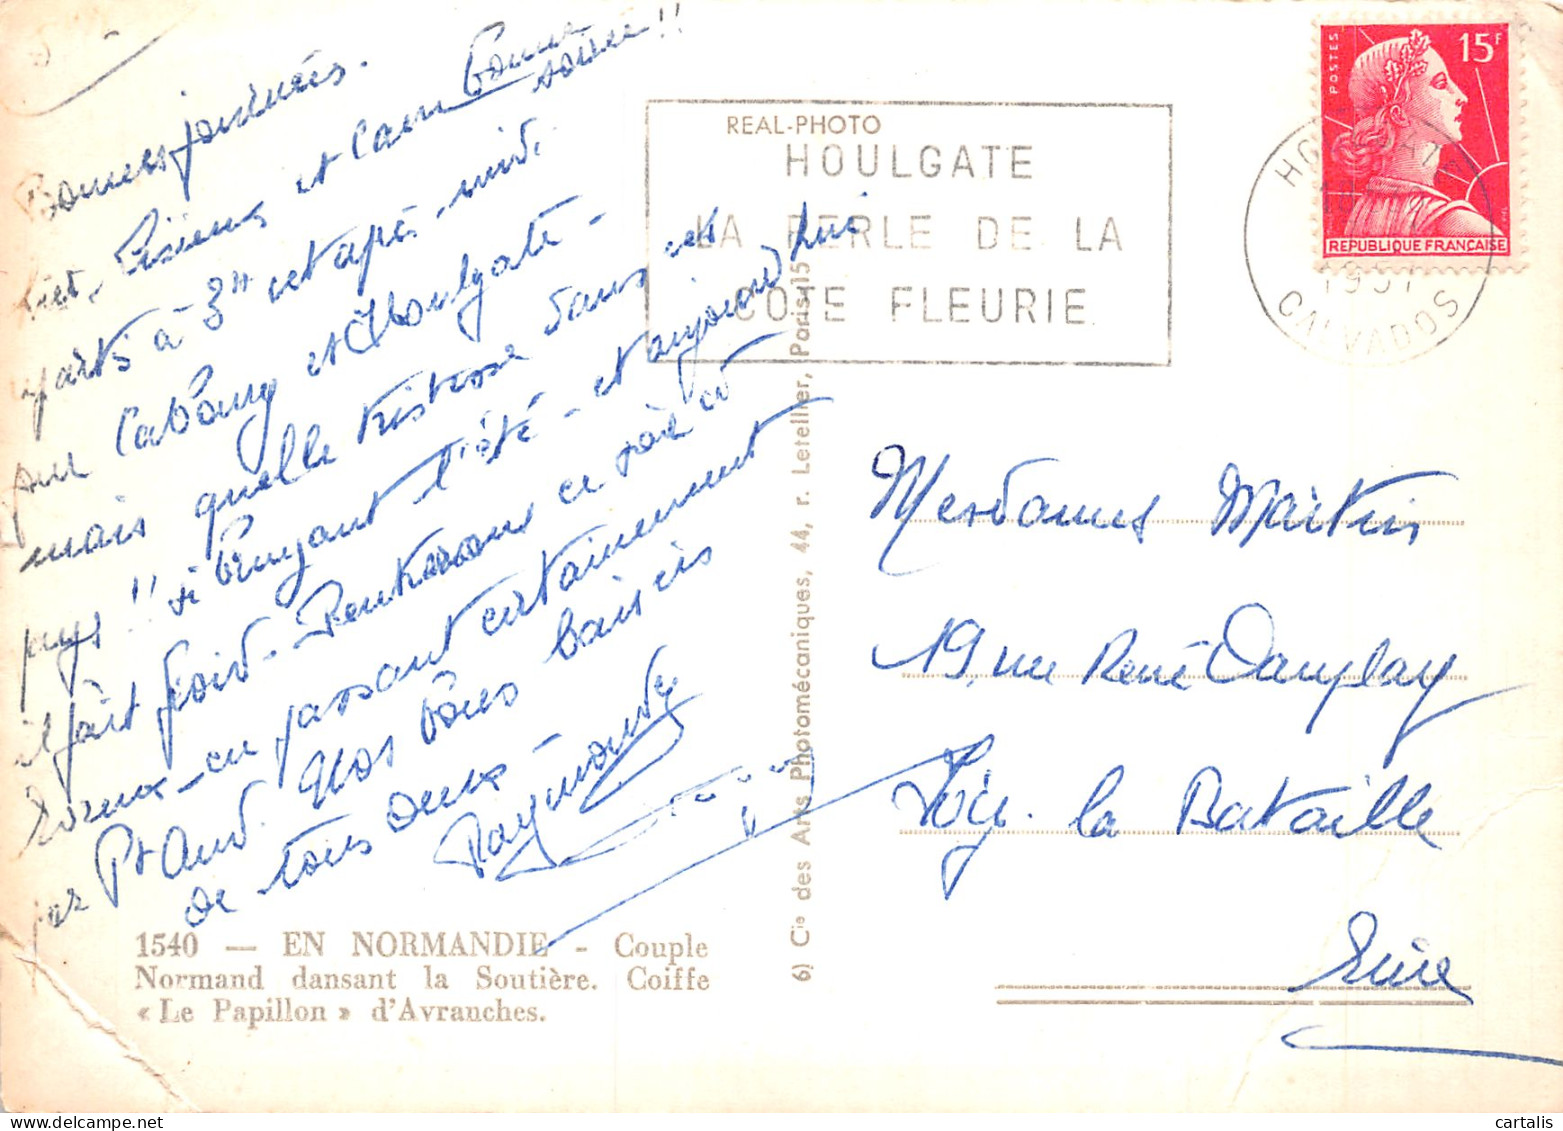 Bonnes journées.
hier, Lisieux et Caen bonne
soirée !!
partis à 3H et après-midi
sur Cabourg et Houlgate -
mais quelle tristesse dans ces
pays !! si bruyant l'été - et aujourd'hui
il fait froid - Rentrerons ce soir à
Evreux - en passant certainement
par Pt Aud. Nos bons baisers
de tous deux -
Raymonde
REAL-PHOTO
HOULGATE
LA PERLE DE LA
COTE FLEURIE
HOULGATE
1957
CALVADOS
POSTES
15F
REPUBLIQUE FRANÇAISE
Mesdames Martin
19, rue René Dauplay
Ivry. la Bataille
Eure
6) Cie des Arts Photomécaniques, 44, r. Letellier, Paris-15
1540 — EN NORMANDIE - Couple
Normand dansant la Soutière. Coiffe
« Le Papillon » d'Avranches.
cartalis